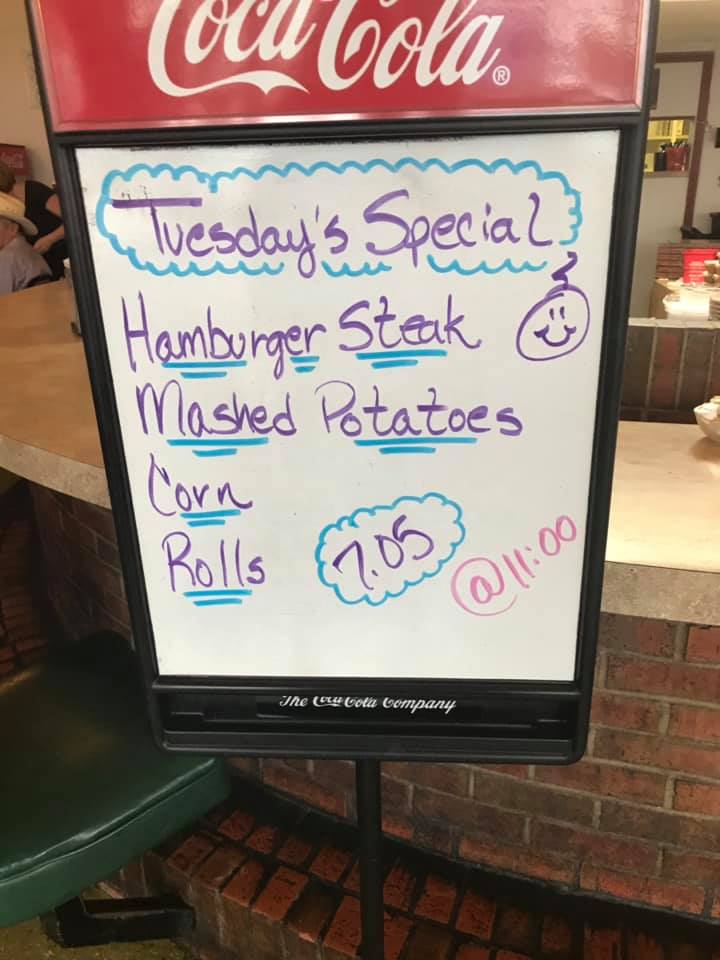 Coca-Cola®
Tuesday's Special
Hamburger Steak
Mashed Potatoes
Corn
Rolls
7.05
@11:00
The Coca-Cola Company